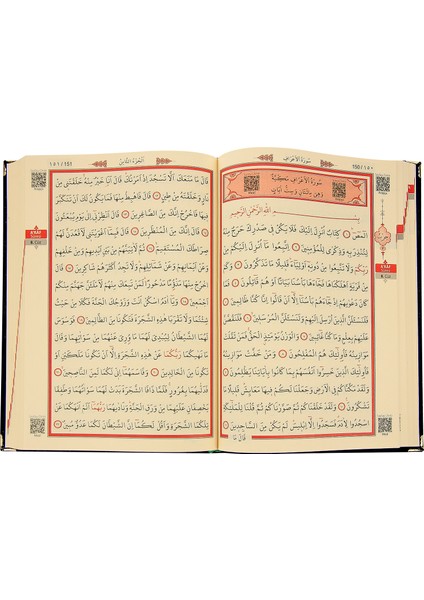 150 / ١٥٠
سُورَةُ الْاَعْرَافِ
سُورَةُ الْاَعْرَافِ مَكِّيَّةٌ
وَهِيَ مِائَتَانِ وَسِتُّ اٰيَاتٍ
بِسْمِ اللّٰهِ الرَّحْمٰنِ الرَّحِيمِ
الٓمٓصٓ ۝ كِتَابٌ اُنْزِلَ اِلَيْكَ فَلَا يَكُنْ فِي صَدْرِكَ حَرَجٌ مِنْهُ
لِتُنْذِرَ بِهِ وَذِكْرٰى لِلْمُؤْمِنِينَ ۝ اِتَّبِعُوا مَا اُنْزِلَ اِلَيْكُمْ مِنْ
رَبِّكُمْ وَلَا تَتَّبِعُوا مِنْ دُونِهِ اَوْلِيَاءَ قَلِيلًا مَا تَذَكَّرُونَ ۝
وَكَمْ مِنْ قَرْيَةٍ اَهْلَكْنَاهَا فَجَاءَهَا بَأْسُنَا بَيَاتًا اَوْ هُمْ قَائِلُونَ ۝ فَمَا
كَانَ دَعْوٰيهُمْ اِذْ جَاءَهُمْ بَأْسُنَا اِلَّا اَنْ قَالُوا اِنَّا كُنَّا ظَالِمِينَ ۝
فَلَنَسْـَٔلَنَّ الَّذِينَ اُرْسِلَ اِلَيْهِمْ وَلَنَسْـَٔلَنَّ الْمُرْسَلِينَ ۝ فَلَنَقُصَّنَّ
عَلَيْهِمْ بِعِلْمٍ وَمَا كُنَّا غَائِبِينَ ۝ وَالْوَزْنُ يَوْمَئِذٍ الْحَقُّ فَمَنْ ثَقُلَتْ
مَوَازِينُهُ فَاُولٰئِكَ هُمُ الْمُفْلِحُونَ ۝ وَمَنْ خَفَّتْ مَوَازِينُهُ
فَاُولٰئِكَ الَّذِينَ خَسِرُوا اَنْفُسَهُمْ بِمَا كَانُوا بِاٰيَاتِنَا يَظْلِمُونَ ۝
وَلَقَدْ مَكَّنَّاكُمْ فِي الْاَرْضِ وَجَعَلْنَا لَكُمْ فِيهَا مَعَايِشَ قَلِيلًا مَا
تَشْكُرُونَ ۝ وَلَقَدْ خَلَقْنَاكُمْ ثُمَّ صَوَّرْنَاكُمْ ثُمَّ قُلْنَا لِلْمَلٰئِكَةِ
اسْجُدُوا لِاٰدَمَ فَسَجَدُوا اِلَّا اِبْلِيسَ لَمْ يَكُنْ مِنَ السَّاجِدِينَ ۝
قَالَ مَا
اَلْجُزْءُ الثَّامِنُ
151 / ١٥١
قَالَ مَا مَنَعَكَ اَلَّا تَسْجُدَ اِذْ اَمَرْتُكَ قَالَ اَنَا خَيْرٌ مِنْهُ خَلَقْتَنِي مِنْ
نَارٍ وَخَلَقْتَهُ مِنْ طِينٍ ۝ قَالَ فَاهْبِطْ مِنْهَا فَمَا يَكُونُ لَكَ اَنْ تَتَكَبَّرَ
فِيهَا فَاخْرُجْ اِنَّكَ مِنَ الصَّاغِرِينَ ۝ قَالَ اَنْظِرْنِي اِلٰى يَوْمِ يُبْعَثُونَ ۝
قَالَ اِنَّكَ مِنَ الْمُنْظَرِينَ ۝ قَالَ فَبِمَا اَغْوَيْتَنِي لَاَقْعُدَنَّ لَهُمْ
صِرَاطَكَ الْمُسْتَقِيمَ ۝ ثُمَّ لَاٰتِيَنَّهُمْ مِنْ بَيْنِ اَيْدِيهِمْ وَمِنْ خَلْفِهِمْ
وَعَنْ اَيْمَانِهِمْ وَعَنْ شَمَائِلِهِمْ وَلَا تَجِدُ اَكْثَرَهُمْ شَاكِرِينَ ۝ قَالَ
اخْرُجْ مِنْهَا مَذْؤُمًا مَدْحُورًا لَمَنْ تَبِعَكَ مِنْهُمْ لَاَمْلَـَٔنَّ جَهَنَّمَ مِنْكُمْ
اَجْمَعِينَ ۝ وَيَا اٰدَمُ اسْكُنْ اَنْتَ وَزَوْجُكَ الْجَنَّةَ فَكُلَا مِنْ حَيْثُ
شِئْتُمَا وَلَا تَقْرَبَا هٰذِهِ الشَّجَرَةَ فَتَكُونَا مِنَ الظَّالِمِينَ ۝ فَوَسْوَسَ
لَهُمَا الشَّيْطَانُ لِيُبْدِيَ لَهُمَا مَا وُرِيَ عَنْهُمَا مِنْ سَوْاٰتِهِمَا وَقَالَ
مَا نَهٰيكُمَا رَبُّكُمَا عَنْ هٰذِهِ الشَّجَرَةِ اِلَّا اَنْ تَكُونَا مَلَكَيْنِ اَوْ
تَكُونَا مِنَ الْخَالِدِينَ ۝ وَقَاسَمَهُمَا اِنِّي لَكُمَا لَمِنَ النَّاصِحِينَ ۝
فَدَلّٰيهُمَا بِغُرُورٍ فَلَمَّا ذَاقَا الشَّجَرَةَ بَدَتْ لَهُمَا سَوْاٰتُهُمَا وَطَفِقَا
يَخْصِفَانِ عَلَيْهِمَا مِنْ وَرَقِ الْجَنَّةِ وَنَادٰيهُمَا رَبُّهُمَا اَلَمْ اَنْهَكُمَا عَنْ
تِلْكُمَا الشَّجَرَةِ وَاَقُلْ لَكُمَا اِنَّ الشَّيْطَانَ لَكُمَا عَدُوٌّ مُبِينٌ ۝